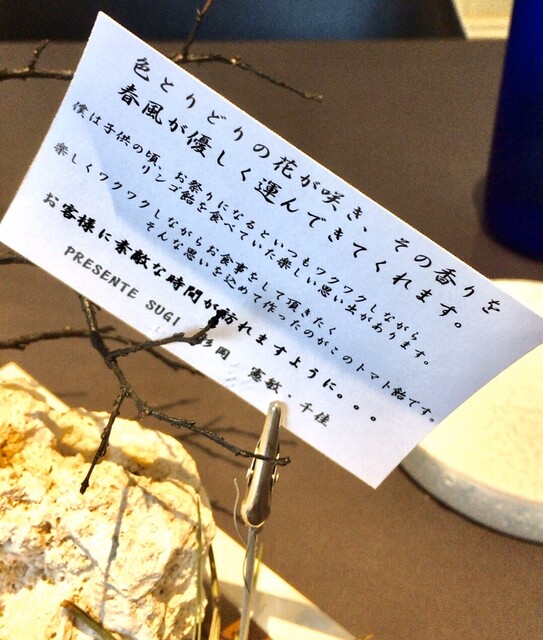 色とりどりの花が咲き、その香りを
春風が優しく運んできてくれます。
僕は子供の頃、お祭りになるといつもワクワクしながら
リンゴ飴を食べていた楽しい思い出があります。
楽しくワクワクしながらお食事をして頂きたく
そんな思いを込めて作ったのがこのトマト飴です。
お客様に素敵な時間が訪れますように。。。
PRESENTE SUGI 杉岡 憲敏、千佳